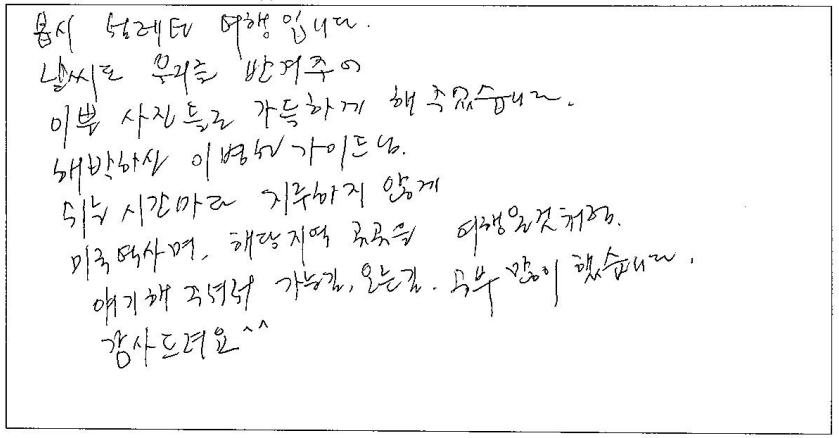 몹시 설레던 여행입니다.
날씨도 우리를 반겨주어
이쁜 사진들로 가득하게 해 주었습니다.
해박하신 이병천 가이드님.
쉬는 시간마다 지루하지 않게
미국역사며, 해당지역 곳곳을 여행일것처럼.
얘기해 주셔서 가는길, 오는길. 공부 많이 했습니다.
감사드려요^^